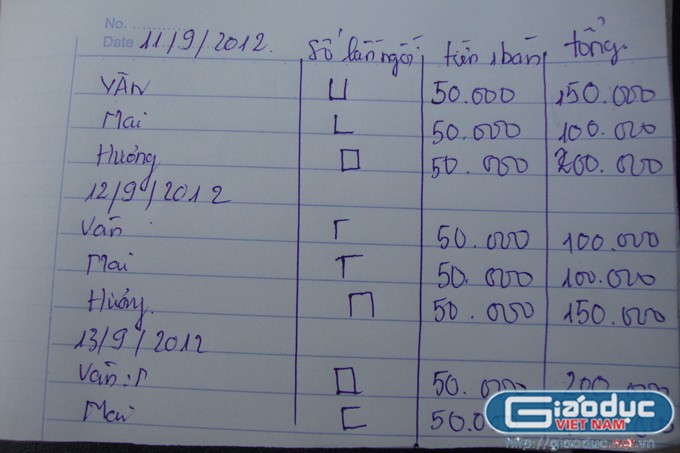 No.
Date 11/9/2012. Số lần ngồi tiền 1 bàn tổng.
VÂN 50.000 150.000
Mai 50.000 100.000
Hưởng 50.000 200.000
12/9/2012
Vân 50.000 100.000
Mai 50.000 100.000
Hưởng. 50.000 150.000
13/9/2012
Vân: 50.000 200.000
Mai
Giáodục
VIỆT NAM